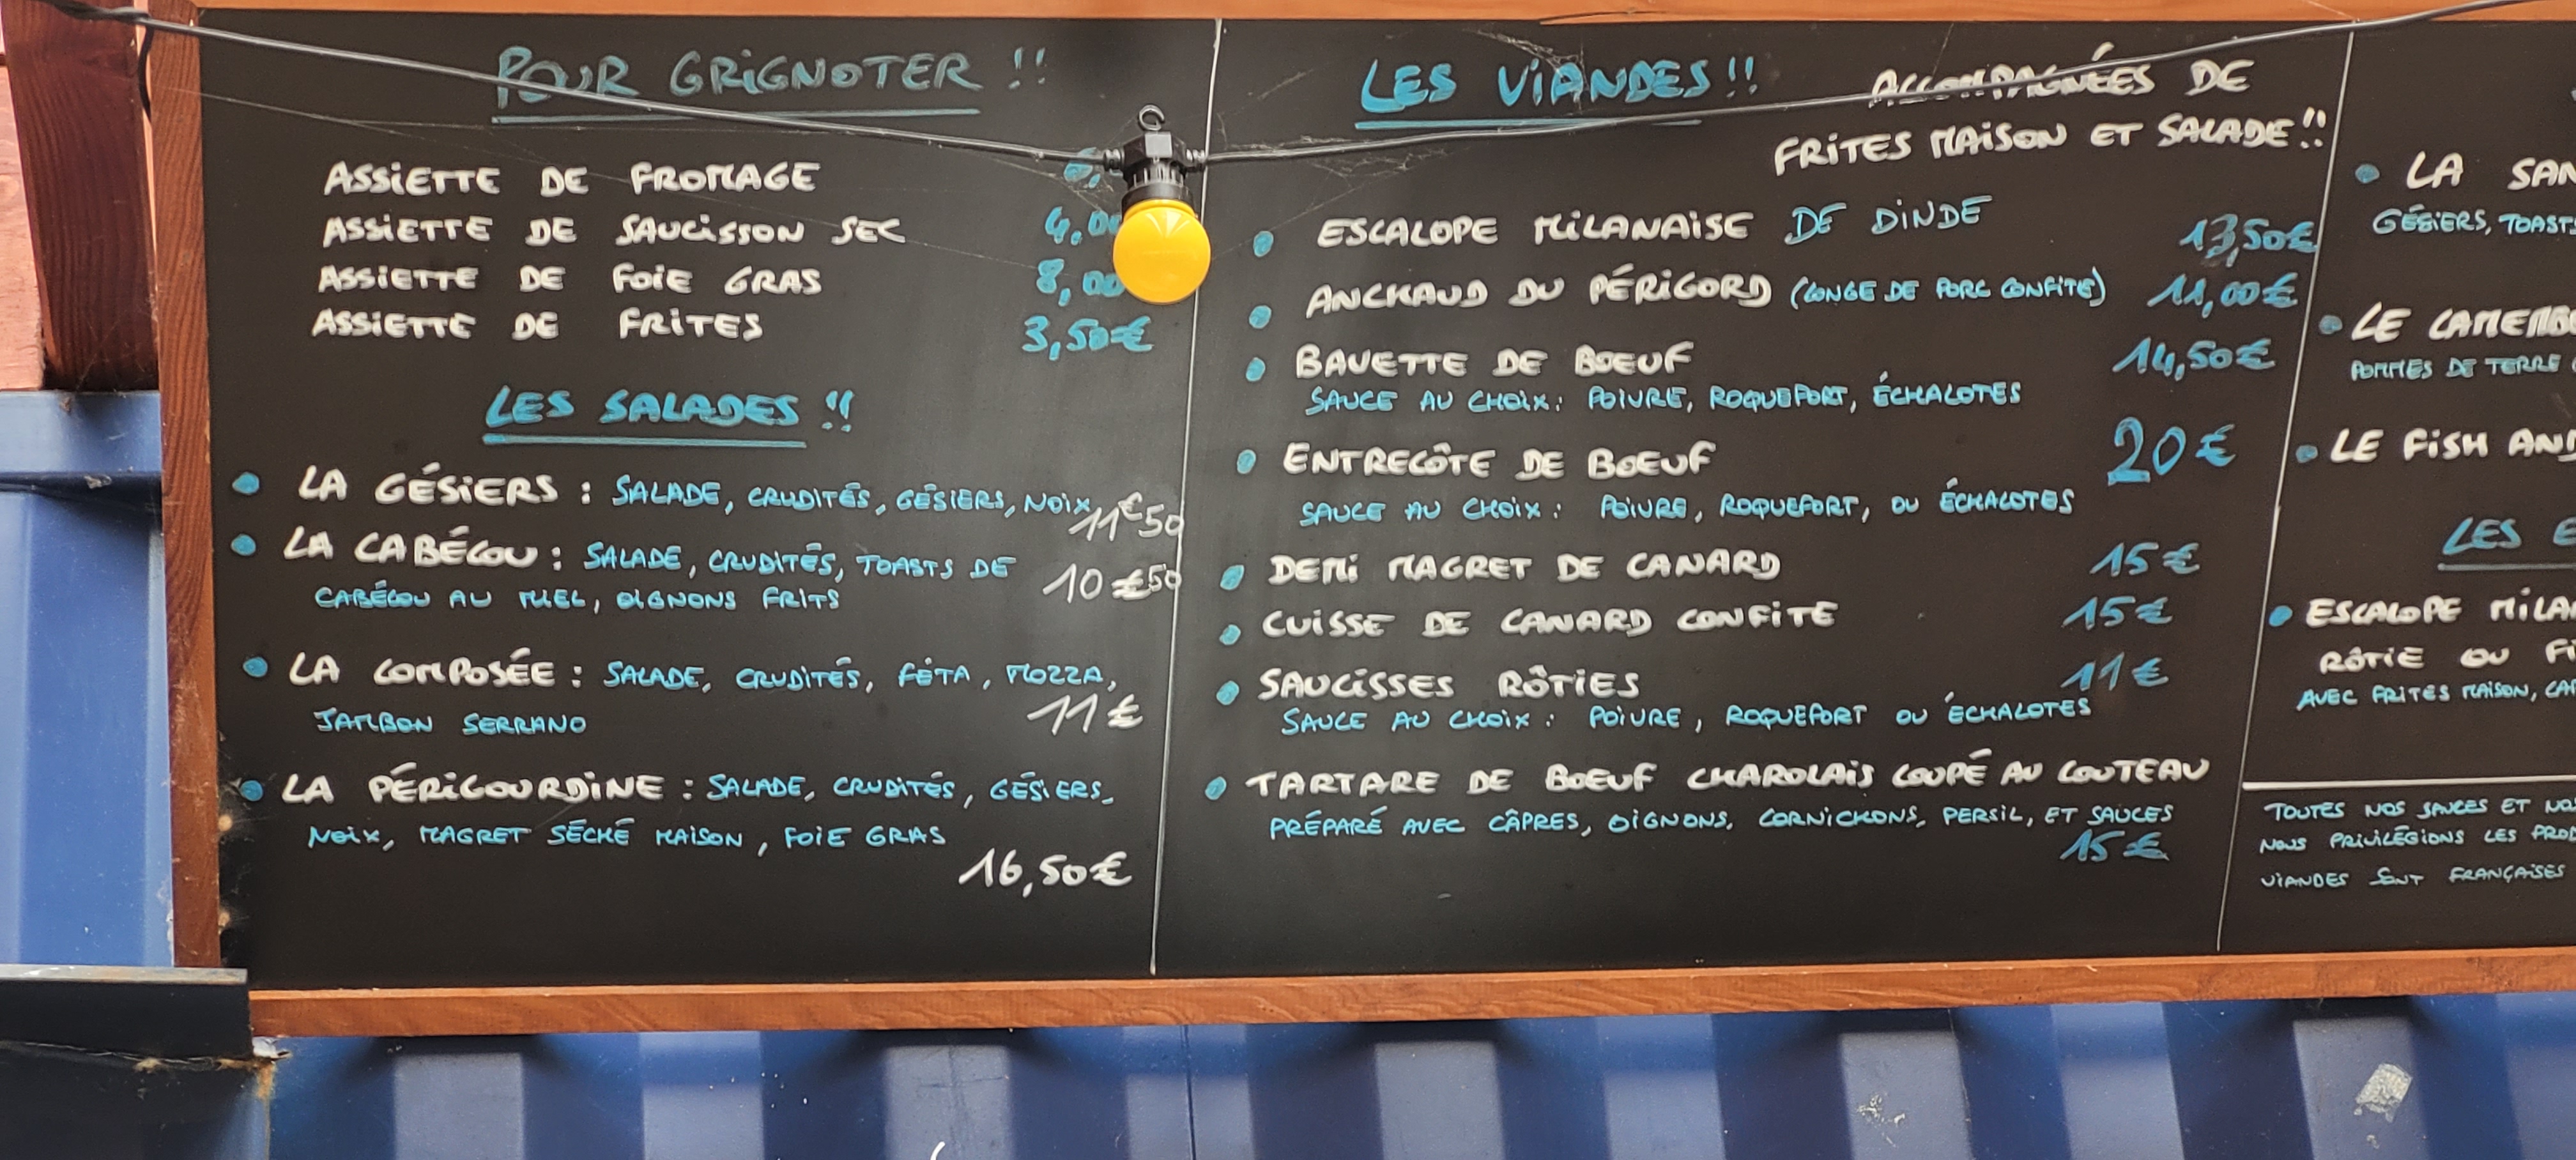 POUR GRIGNOTER !!
ASSIETTE DE FROMAGE
ASSIETTE DE SAUCISSON SEC 4,00
ASSIETTE DE FOIE GRAS 8,00
ASSIETTE DE FRITES 3,50€
LES SALADES !!
LA GÉSIERS : SALADE, CRUDITÉS, GÉSIERS, NOIX,
11€50
LA CABÉCOU : SALADE, CRUDITÉS, TOASTS DE
CABÉCOU AU MIEL, OIGNONS FRITS 10€50
LA COMPOSÉE : SALADE, CRUDITÉS, FÉTA, MOZZA,
JAMBON SERRANO 11€
LA PÉRIGOURDINE : SALADE, CRUDITÉS, GÉSIERS,
NOIX, MAGRET SÉCHÉ MAISON, FOIE GRAS
16,50€
LES VIANDES !! ACCOMPAGNÉES DE
FRITES MAISON ET SALADE !!
ESCALOPE MILANAISE DE DINDE 13,50€
ANCHAUD DU PÉRIGORD (LONGE DE PORC CONFITE) 11,00€
BAVETTE DE BOEUF 14,50€
SAUCE AU CHOIX : POIVRE, ROQUEFORT, ÉCHALOTES
ENTRECÔTE DE BOEUF 20€
SAUCE AU CHOIX : POIVRE, ROQUEFORT, OU ÉCHALOTES
DEMI MAGRET DE CANARD 15€
CUISSE DE CANARD CONFITE 15€
SAUCISSES RÔTIES 11€
SAUCE AU CHOIX : POIVRE, ROQUEFORT OU ÉCHALOTES
TARTARE DE BOEUF CHAROLAIS COUPÉ AU COUTEAU
PRÉPARÉ AVEC CÂPRES, OIGNONS, CORNICHONS, PERSIL, ET SAUCES
15€
LA SAN
GÉSIERS, TOASTS
LE CAMEMB
POMMES DE TERRE
LE FISH AND
LES E
ESCALOPE MILA
RÔTIE OU FI
AVEC FRITES MAISON, CA
TOUTES NOS SAUCES ET NO
NOUS PRIVILÉGIONS LES PROD
VIANDES SONT FRANÇAISES